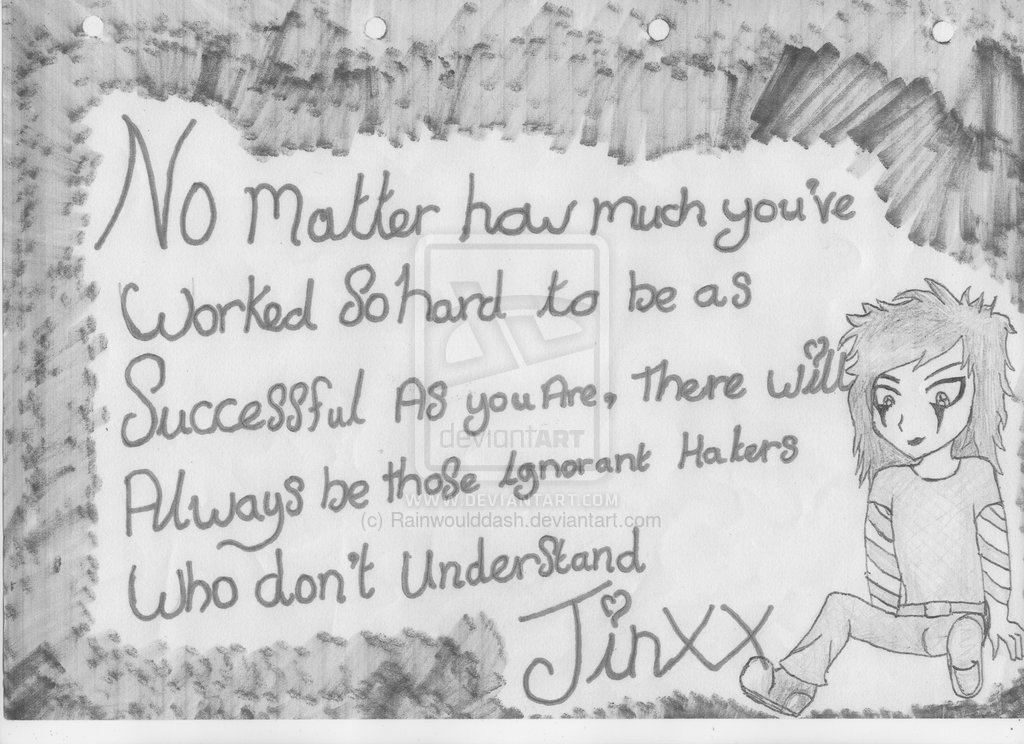 No Matter how much you've
Worked So hard to be as
Successful As you Are, There will
Always be those Ignorant Haters
Who don't Understand
Jinxx
deviantART
WWW.DEVIANTART.COM
(c) Rainwoulddash.deviantart.com